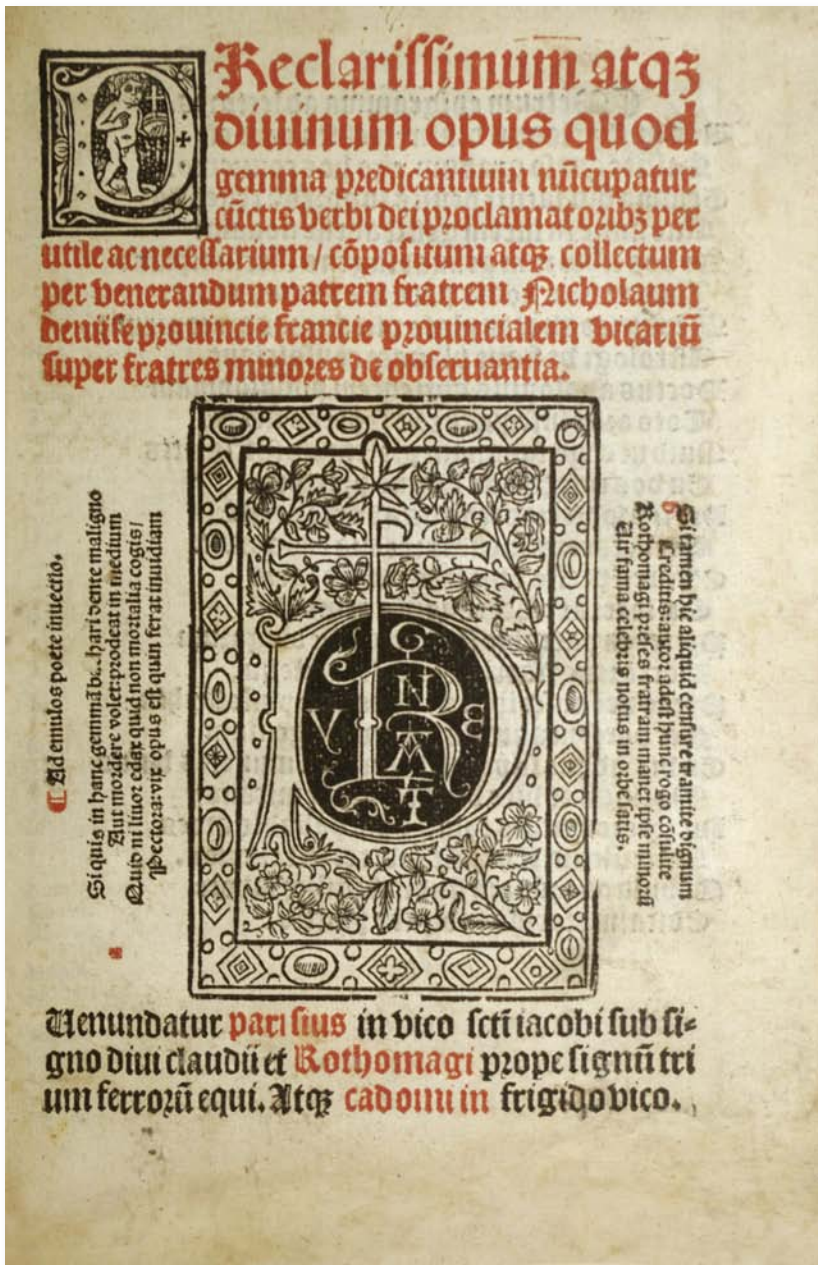 PReclarissimum atqꝫ
diuinum opus quod
gemma predicantium nūcupatur
cūctis verbi dei proclamatoribꝫ per
utile ac necessarium / cōpositum atqꝫ collectum
per venerandum patrem fratrem Nicholaum
deniise prouincie francie prouincialem vicariū
super fratres minores de obseruantia.
¶ Ad emulos poete inuectio.
Si quis in hanc gemmā b...hari dente maligno
Aut mordere volet: prodeat in medium
Quid ni liuor edax quid non mortalia cogis /
Pectora: vix opus est quin ferat inuidiam
V G N R E A T
Si tamen hic aliquid censure tramite dignum
Creditis: autor adest hunc rogo cōsulite
Rothomagi preses fratrum manet ipse minorū
Uir fama celebris notus in orbe satis.
Uenundatur parisius in vico scti iacobi sub si-
gno diui claudii et Rothomagi prope signū tri
um ferrorū equi. Atqꝫ cadomi in frigido vico.